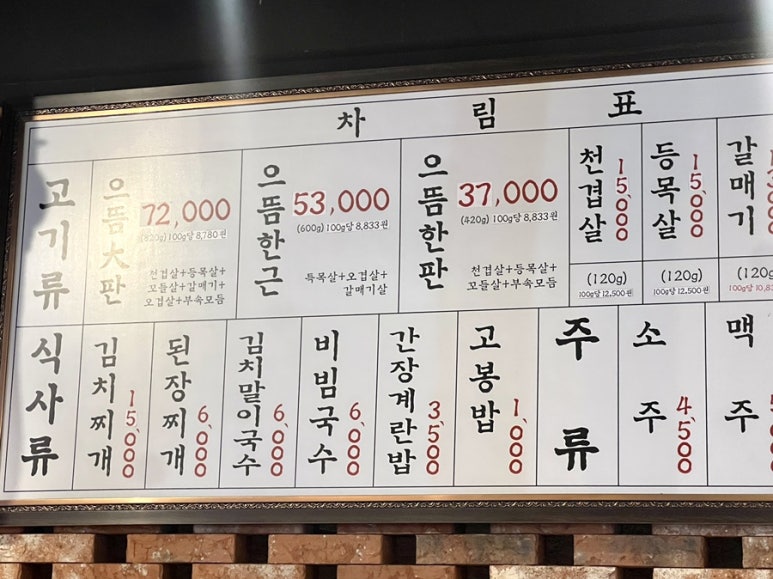 차림표
고기류
으뜸大판
72,000
(820g) 100g당 8,780원
천겹살+등목살+
꼬들살+갈매기+
오겹살+부속모듬
으뜸한근
53,000
(600g) 100g당 8,833원
특목살+오겹살+
갈매기살
으뜸한판
37,000
(420g) 100g당 8,833원
천겹살+등목살+
꼬들살+부속모듬
천겹살
15,000
(120g)
100g당 12,500원
등목살
15,000
(120g)
100g당 12,500원
갈매기
식사류
김치찌개
15,000
된장찌개
6,000
김치말이국수
6,000
비빔국수
6,000
간장계란밥
3,500
고봉밥
1,000
주류
소주
4,500
맥주